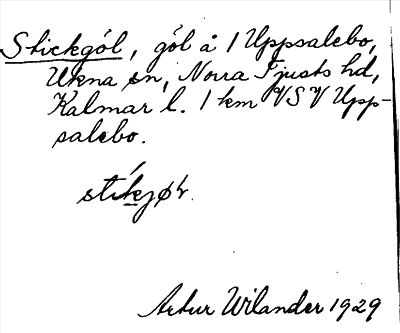 Stickgöl, göl å 1 Uppsalebo,
Ukna sn, Norra Tjusts hd,
Kalmar l. 1 km VSV Upp-
salebo.
Artur Wilander 1929